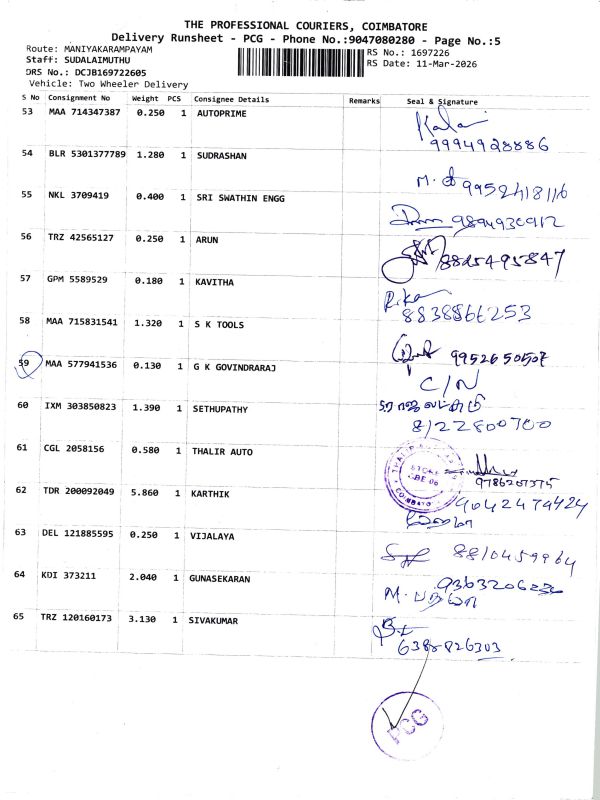 THE PROFESSIONAL COURIERS, COIMBATORE
Delivery Runsheet - PCG - Phone No.:9047080280 - Page No.:5
Route: MANIYAKARAMPAYAM RS No.: 1697226
Staff: SUDALAIMUTHU RS Date: 11-Mar-2026
DRS No.: DCJB169722605
Vehicle: Two Wheeler Delivery
S No Consignment No Weight PCS Consignee Details Remarks Seal & Signature
53 MAA 714347387 0.250 1 AUTOPRIME Kalai
9994928886
54 BLR 5301377789 1.280 1 SUDRASHAN
M. 9952418116
55 NKL 3709419 0.400 1 SRI SWATHIN ENGG
9894930912
56 TRZ 42565127 0.250 1 ARUN
8825495847
57 GPM 5589529 0.180 1 KAVITHA
8838866253
58 MAA 715831541 1.320 1 S K TOOLS
9952650507
59 MAA 577941536 0.130 1 G K GOVINDRARAJ
C/N
60 IXM 303850823 1.390 1 SETHUPATHY
8122800700
61 CGL 2058156 0.580 1 THALIR AUTO
THALIR STORE COIMBATORE
62 TDR 200092049 5.860 1 KARTHIK
9042474424
63 DEL 121885595 0.250 1 VIJALAYA
8810459964
64 KDI 373211 2.040 1 GUNASEKARAN
M.
65 TRZ 120160173 3.130 1 SIVAKUMAR
6388826303
PCG